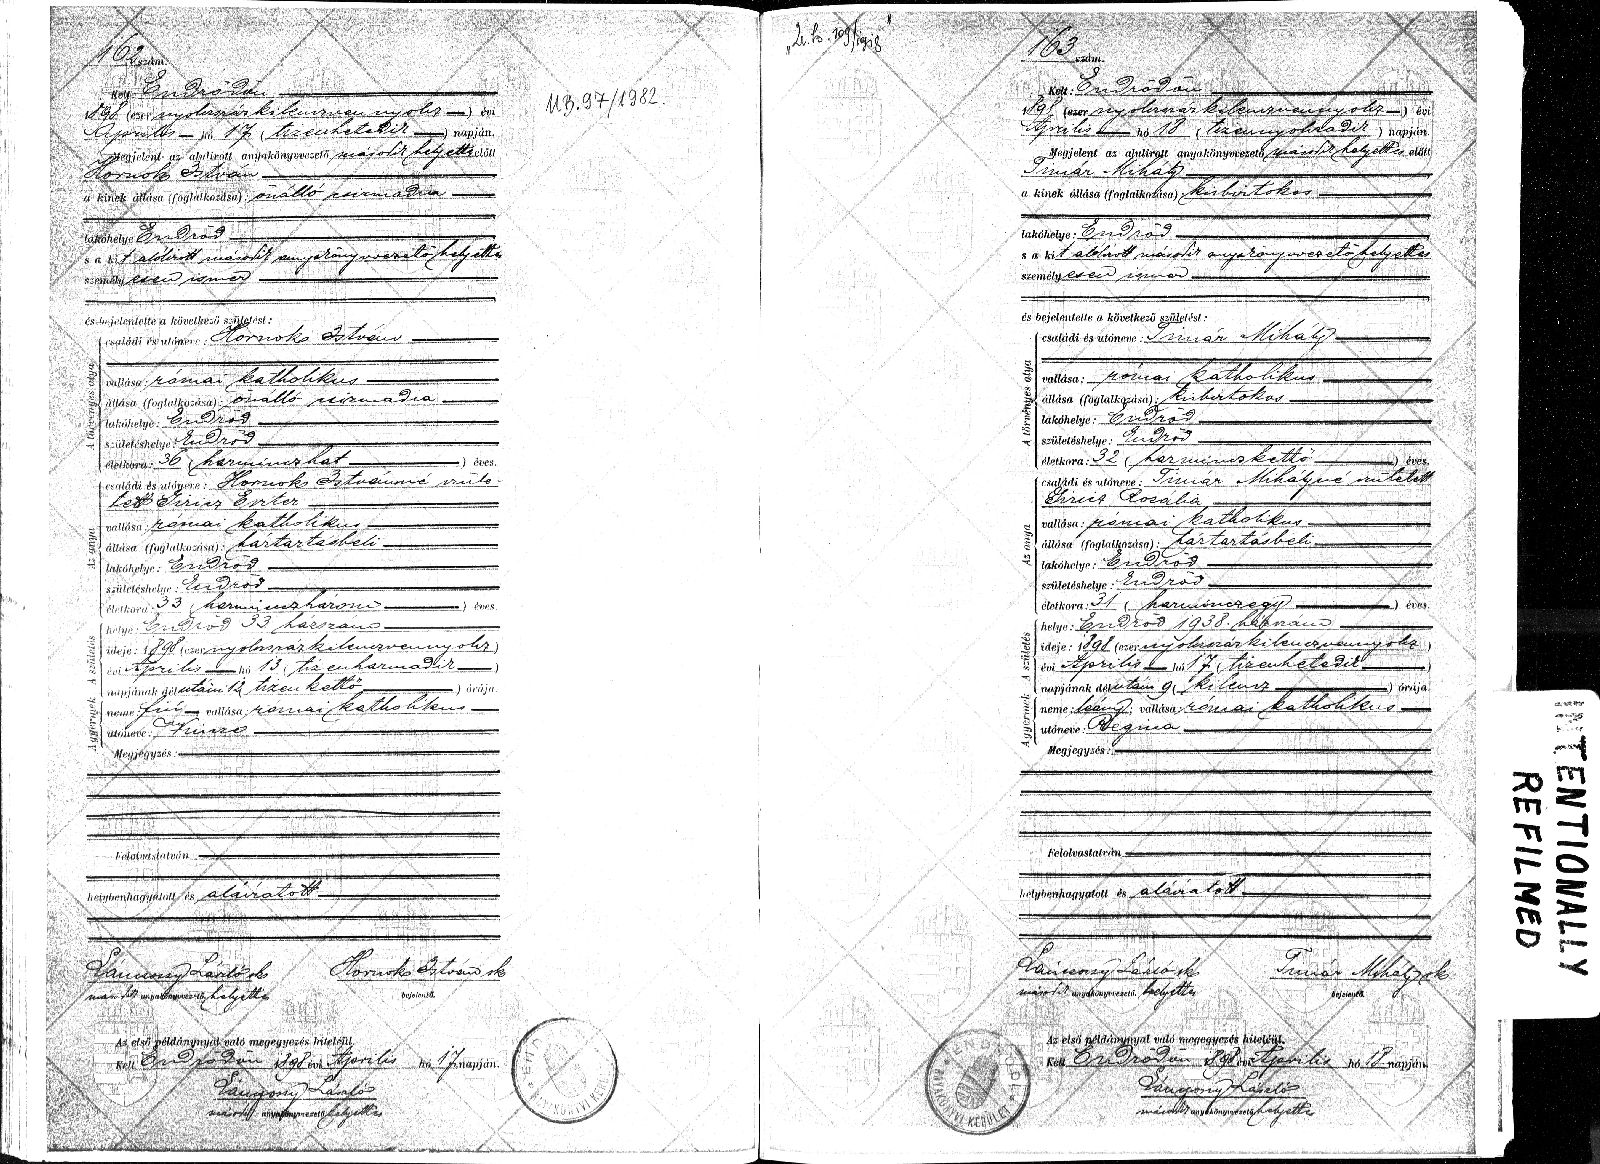 162 szám.
Kelt Endrődön
1898 (ezer nyolcszázkilenczvennyolcz) évi
Április hó 17 (tizenhetedik) napján.
Megjelent az alulirott anyakönyvvezető második helyettes előtt
Hornok István
a kinek állása (foglalkozása): önálló csizmadia
lakóhelye Endrőd
s a kit alólirott második anyakönyvvezető helyettes
személyesen ismer
és bejelentette a következő születést:
A törvényes atya
családi és utóneve: Hornok István
vallása: római katholikus
állása (foglalkozása): önálló csizmadia
lakóhelye: Endrőd
születéshelye: Endrőd
életkora: 36 (harminczhat) éves.
Az anya
családi és utóneve: Hornok Istvánné szüle-
tett Giricz Eszter
vallása: római katholikus
állása (foglalkozása): háztartásbeli
lakóhelye: Endrőd
születéshelye: Endrőd
életkora: 33 (harminczhárom) éves.
A születés
helye: Endrőd 33 házszám
ideje: 1898 (ezer nyolcszázkilenczvennyolcz)
évi Április hó 13 (tizenharmadik)
napjának délután 12 tizenkettő) órája.
A gyermek
neme: fiú vallása: római katholikus
utóneve: Vincze
Megjegyzés:
Felolvastatván
helybenhagyatott és aláiratott
László sk
Hornok István sk
második anyakönyvvezető helyettes
bejelentő.
Az első példánynyal való megegyezés hiteléül.
Kelt Endrődön 1898 évi Április hó 17 napján.
László
második anyakönyvvezető helyettes
113.97/1982.
163 szám.
Kelt: Endrődön
1898 (ezer nyolcszázkilenczvennyolcz) évi
Április hó 18 (tizennyolcadik) napján.
Megjelent az alulirott anyakönyvvezető második helyettes előtt
Timár Mihály
a kinek állása (foglalkozása) kisbirtokos
lakóhelye: Endrőd
s a kit alólirott második anyakönyvvezető helyettes
személyesen ismer
és bejelentette a következő születést:
A törvényes atya
családi és utóneve: Timár Mihály
vallása: római katholikus
állása (foglalkozása): kisbirtokos
lakóhelye: Endrőd
születéshelye: Endrőd
életkora: 32 (harminczkettő) éves.
Az anya
családi és utóneve: Timár Mihályné született
Giricz Rozália
vallása: római katholikus
állása (foglalkozása): háztartásbeli
lakóhelye: Endrőd
születéshelye: Endrőd
életkora: 31 (harminczegy) éves.
A születés
helye: Endrőd 1938. házszám
ideje: 1898 (ezer nyolcszázkilenczvennyolcz)
évi Április hó 17 (tizenhetedik)
napjának délután 9 (kilencz) órája
A gyermek
neme: leány; vallása: római katholikus
utóneve: Regina
Megjegyzés:
Felolvastatván
helybenhagyatott és aláiratott
László sk
Timár Mihály sk
második anyakönyvvezető. helyettes
bejelentő.
Az első példánynyal való megegyezés hiteléül.
Kelt Endrődön 1898 évi Április hó 18 napján.
László
második anyakönyvvezető helyettes
INTENTIONALLY
REFILMED